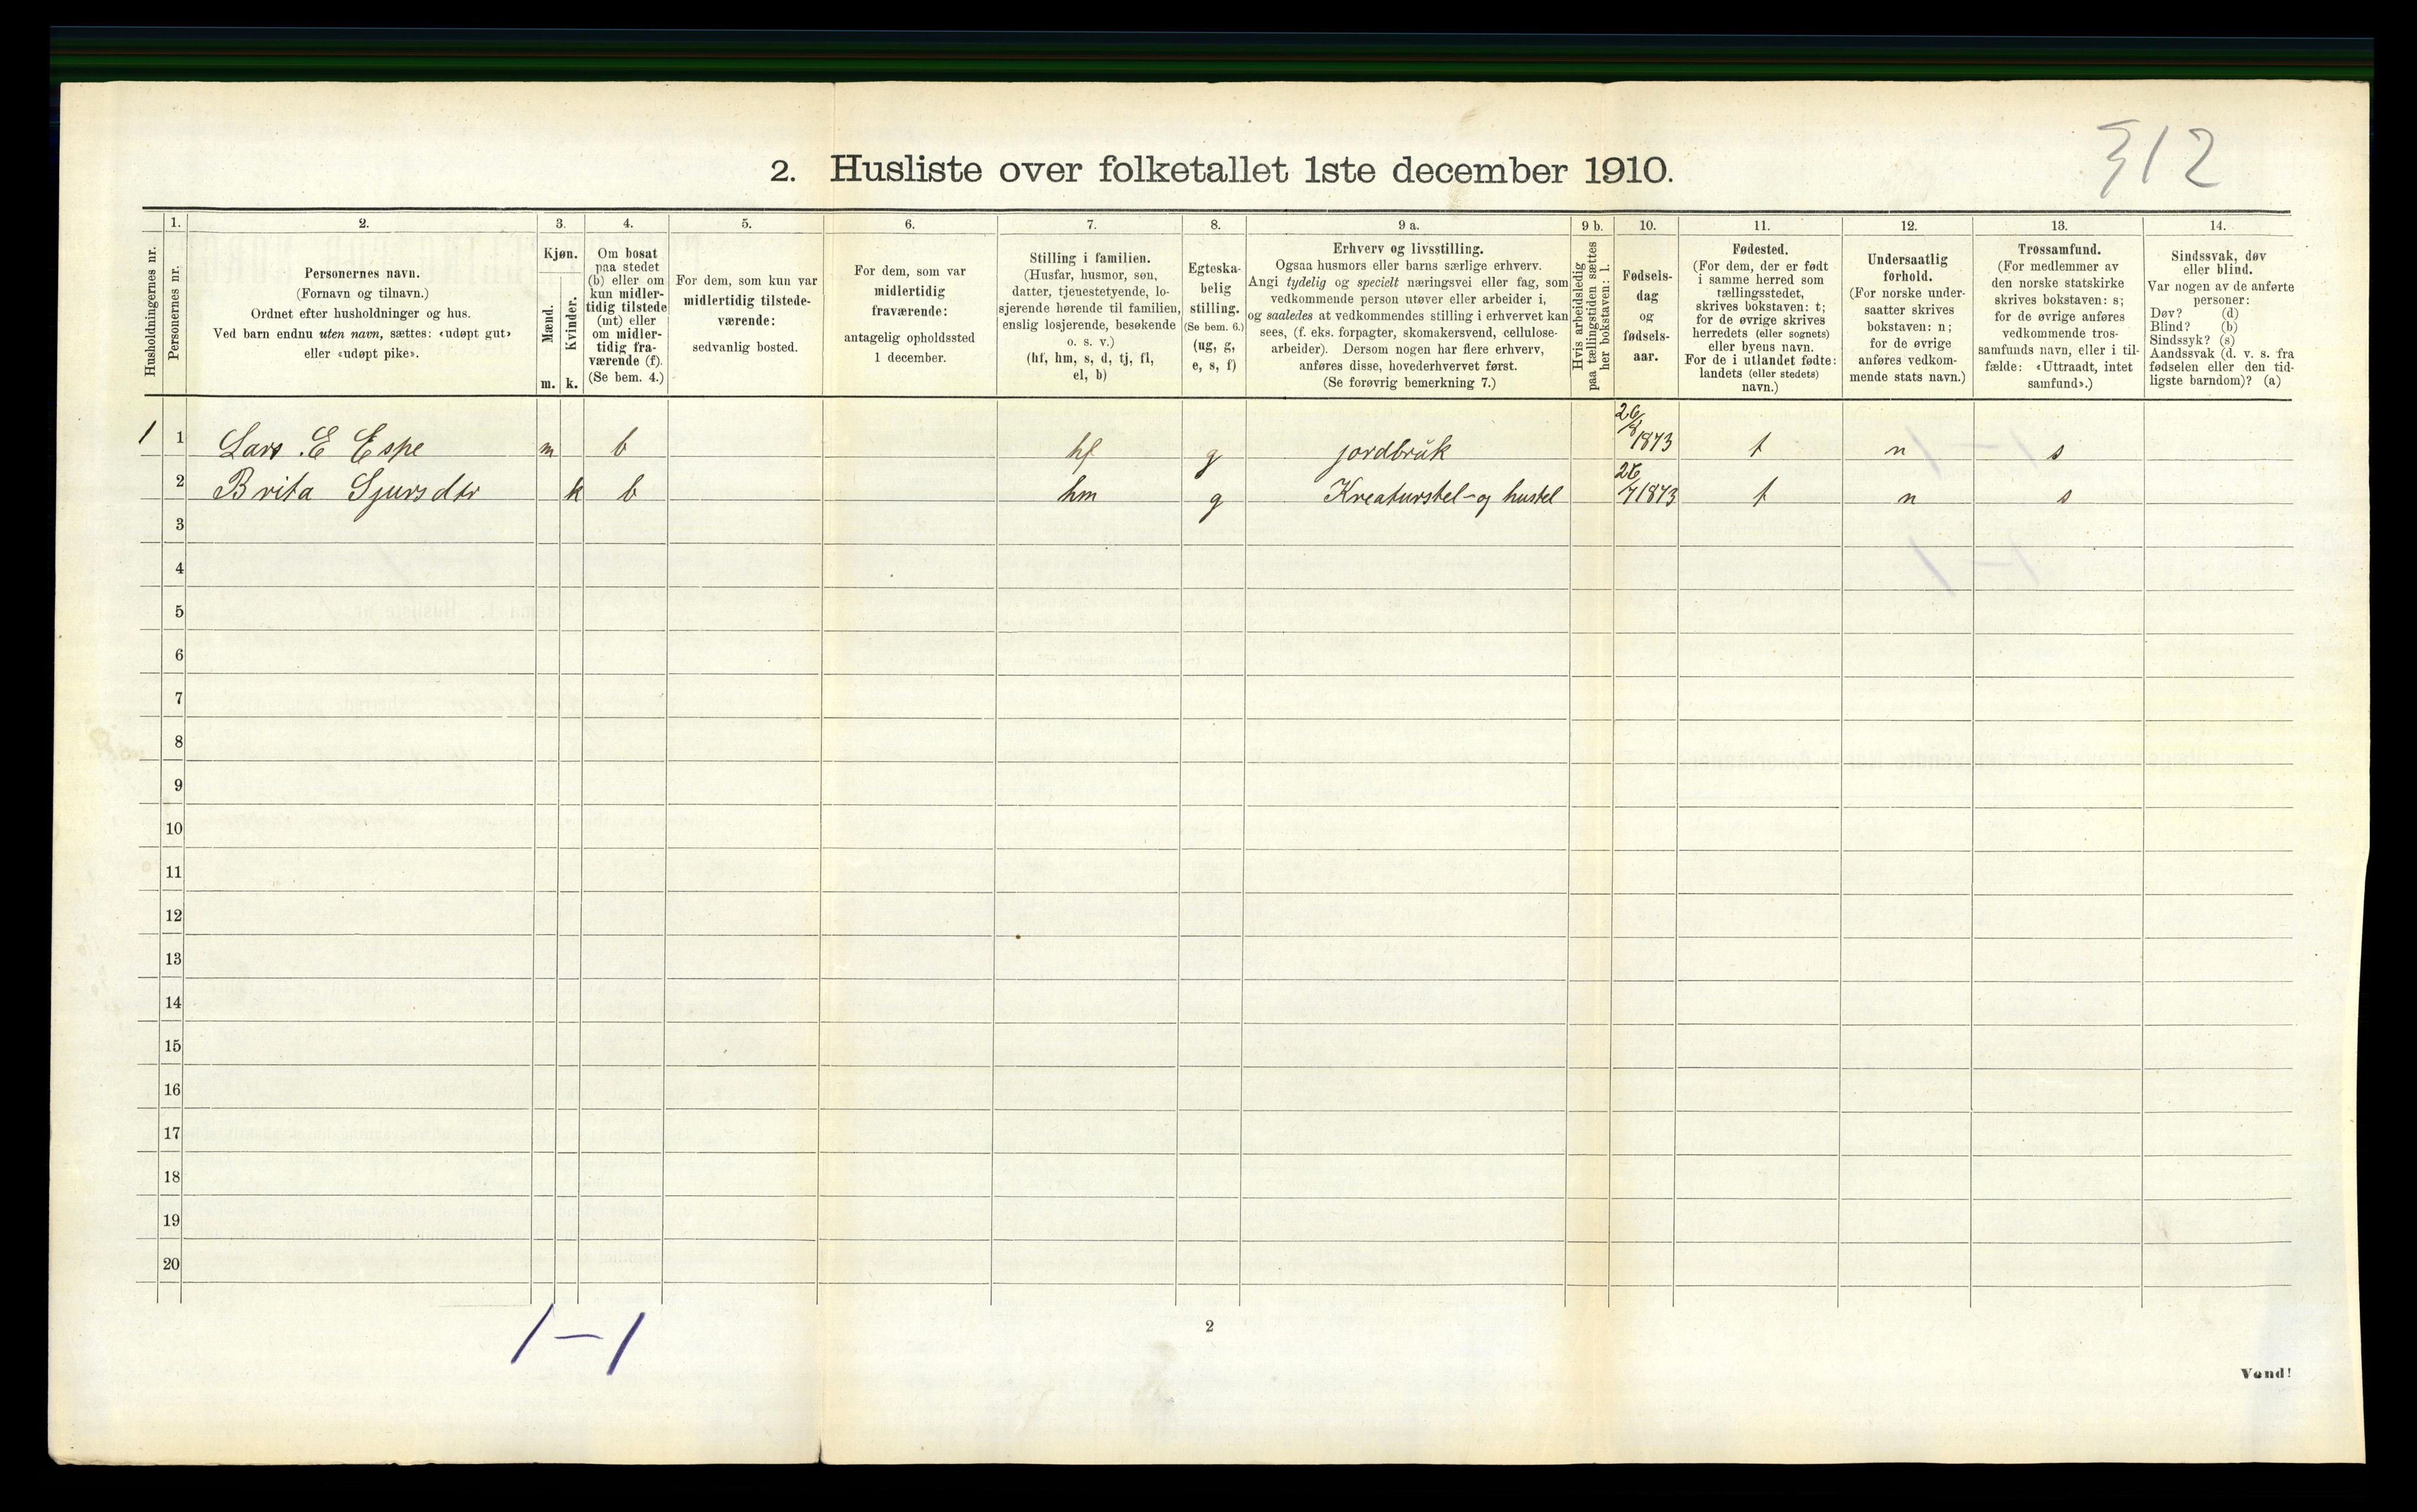 312
2. Husliste over folketallet 1ste december 1910.
Husholdningernes nr.
1.
Personernes nr.
2.
Personernes navn.
(Fornavn og tilnavn.)
Ordnet efter husholdninger og hus.
Ved barn endnu uten navn, sættes: «udøpt gut»
eller «udøpt pike».
3.
Kjøn.
Mænd.
m.
Kvinder.
k.
4.
Om bosat
paa stedet
(b) eller om
kun midler-
tidig tilstede
(mt) eller
om midler-
tidig fra-
værende (f).
(Se bem. 4.)
5.
For dem, som kun var
midlertidig tilstede-
værende:
sedvanlig bosted.
6.
For dem, som var
midlertidig
fraværende:
antagelig opholdssted
1 december.
7.
Stilling i familien.
(Husfar, husmor, søn,
datter, tjenestetyende, lo-
sjerende hørende til familien,
enslig losjerende, besøkende
o. s. v.)
(hf, hm, s, d, tj, fl,
el, b)
8.
Egteska-
belig
stilling.
(Se bem. 6.)
(ug, g,
e, s, f)
9 a.
Erhverv og livsstilling.
Ogsaa husmors eller barns særlige erhverv.
Angi tydelig og specielt næringsvei eller fag, som
vedkommende person utøver eller arbeider i,
og saaledes at vedkommendes stilling i erhvervet kan
sees, (f. eks. forpagter, skomakersvend, cellulose-
arbeider). Dersom nogen har flere erhverv,
anføres disse, hovederhvervet først.
(Se forøvrig bemerkning 7.)
9 b.
Hvis arbeidsledig
paa tællingstiden sættes
her bokstaven: l.
10.
Fødsels-
dag
og
fødsels-
aar.
11.
Fødested.
(For dem, der er født
i samme herred som
tællingsstedet,
skrives bokstaven: t;
for de øvrige skrives
herredets (eller sognets)
eller byens navn.
For de i utlandet fødte:
landets (eller stedets)
navn.)
12.
Undersaatlig
forhold.
(For norske under-
saatter skrives
bokstaven: n;
for de øvrige
anføres vedkom-
mende stats navn.)
13.
Trossamfund.
(For medlemmer av
den norske statskirke
skrives bokstaven: s;
for de øvrige anføres
vedkommende tros-
samfunds navn, eller i til-
fælde: «Uttraadt, intet
samfund».)
14.
Sindssvak, døv
eller blind.
Var nogen av de anførte
personer:
Døv? (d)
Blind? (b)
Sindssyk? (s)
Aandssvak (d. v. s. fra
fødselen eller den tid-
ligste barndom)? (a)
1 1 Lars E Espe m b hf g jordbruk 26/8 1873 t n s
2 Brita Sjursdtr k b hm g Kreaturstel- og hustel 26/7 1873 t n s
3
4
5
6
7
8
9
10
11
12
13
14
15
16
17
18
19
20
1-1
2
Vend!